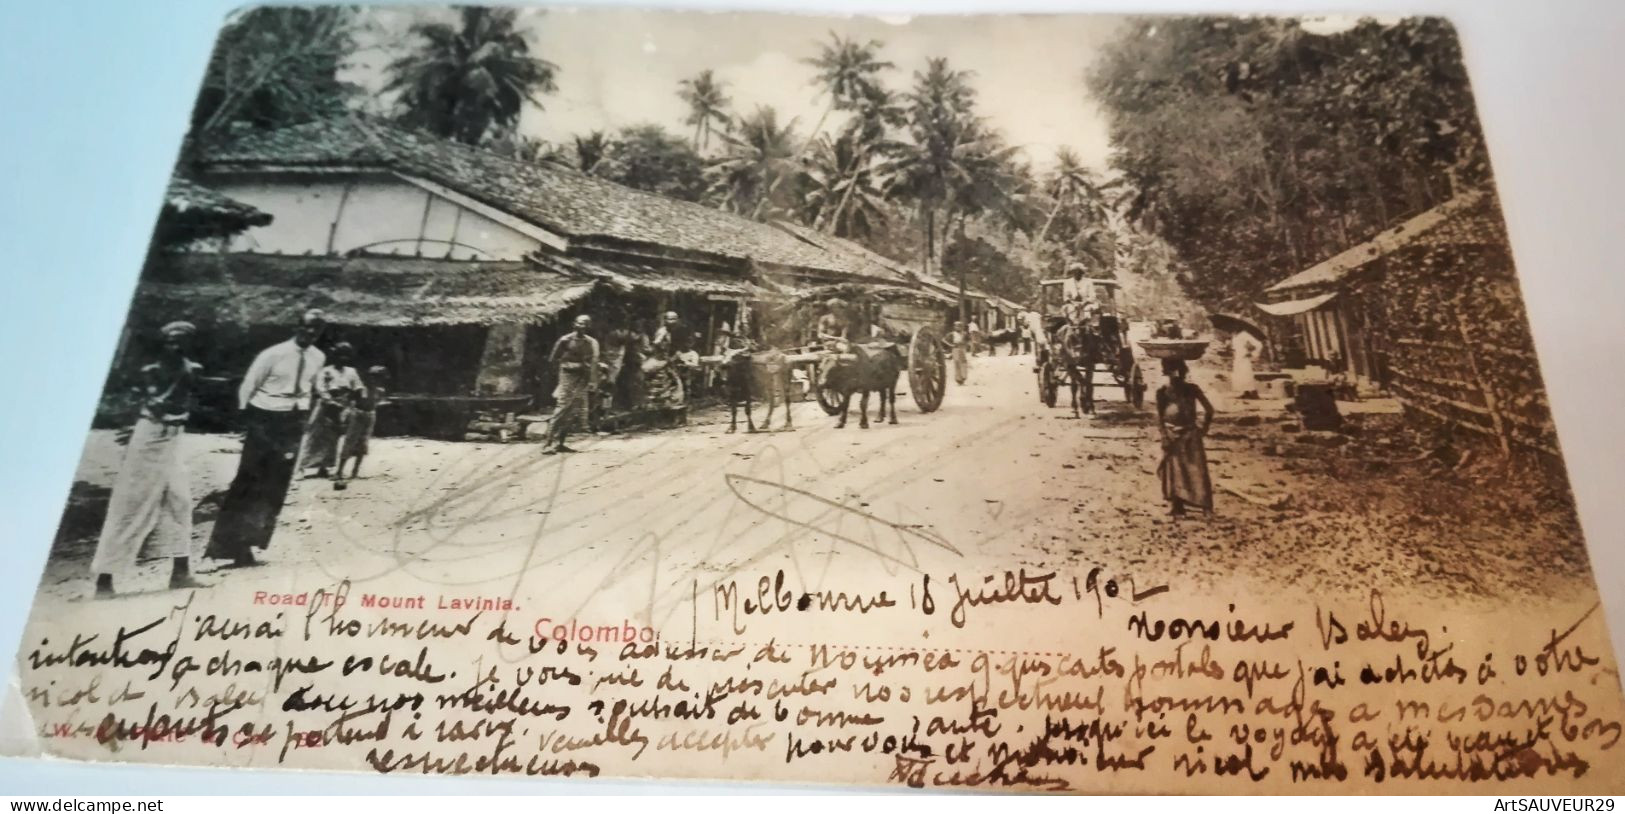 Road To Mount Lavinia.
Colombo
Melbourne 18 Juillet 1902
Monsieur Baley.
J'aurai l'honneur de vous adresser de Nouméa qques cartes postales que j'ai achetés à votre
intention à chaque escale. Je vous prie de présenter nos respectueux hommages à mesdames
nicol et Baley avec nos meilleurs souhaits de bonne santé. Jusqu'ici le voyage a été beau et bon
enfants se portent à ravir. Veuillez accepter pour vous et Monsieur nicol mes salutations
respectueuses
ArtSAUVEUR29
© delcampe.net